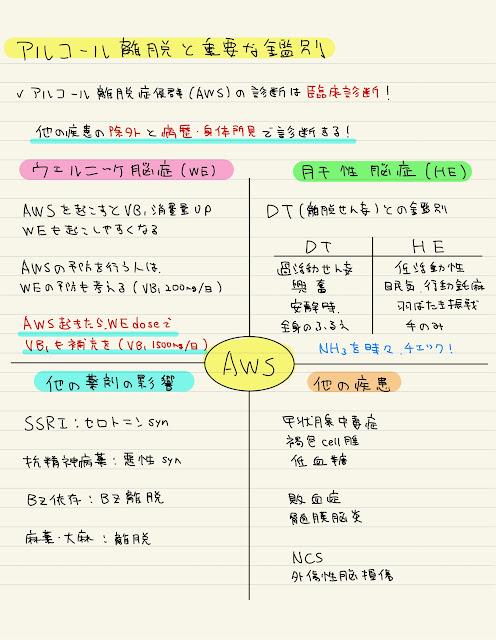 アルコール離脱と重要な鑑別
✓ アルコール離脱症候群(AWS)の診断は臨床診断!
他の疾患の除外と病歴・身体所見で診断する!
ウェルニッケ脳症(WE)
AWSを起こすとVB₁消費量UP
WEも起こしやすくなる
AWSの予防を行う人は、
WEの予防も考える(VB₁ 200mg/日)
AWS起きたら、WE doseで
VB₁も補充を(VB₁ 1500mg/日)
肝性脳症(HE)
DT(離脱せん妄)との鑑別
DT HE
過活動せん妄 低活動性
興奮 眠気、行動鈍麻
安静時、 羽ばたき振戦
全身のふるえ 手のみ
NH₃を時々、チェック!
AWS
他の薬剤の影響
SSRI:セロトニンsyn
抗精神病薬:悪性syn
BZ依存:BZ離脱
麻薬・大麻:離脱
他の疾患
甲状腺中毒症
褐色cell腫
低血糖
敗血症
髄膜脳炎
NCS
外傷性脳損傷